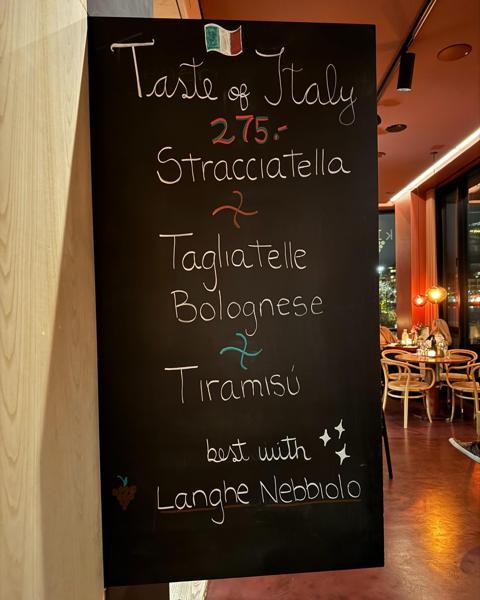 Taste of Italy
275.-
Stracciatella
Tagliatelle
Bolognese
Tiramisú
best with
Langhe Nebbiolo